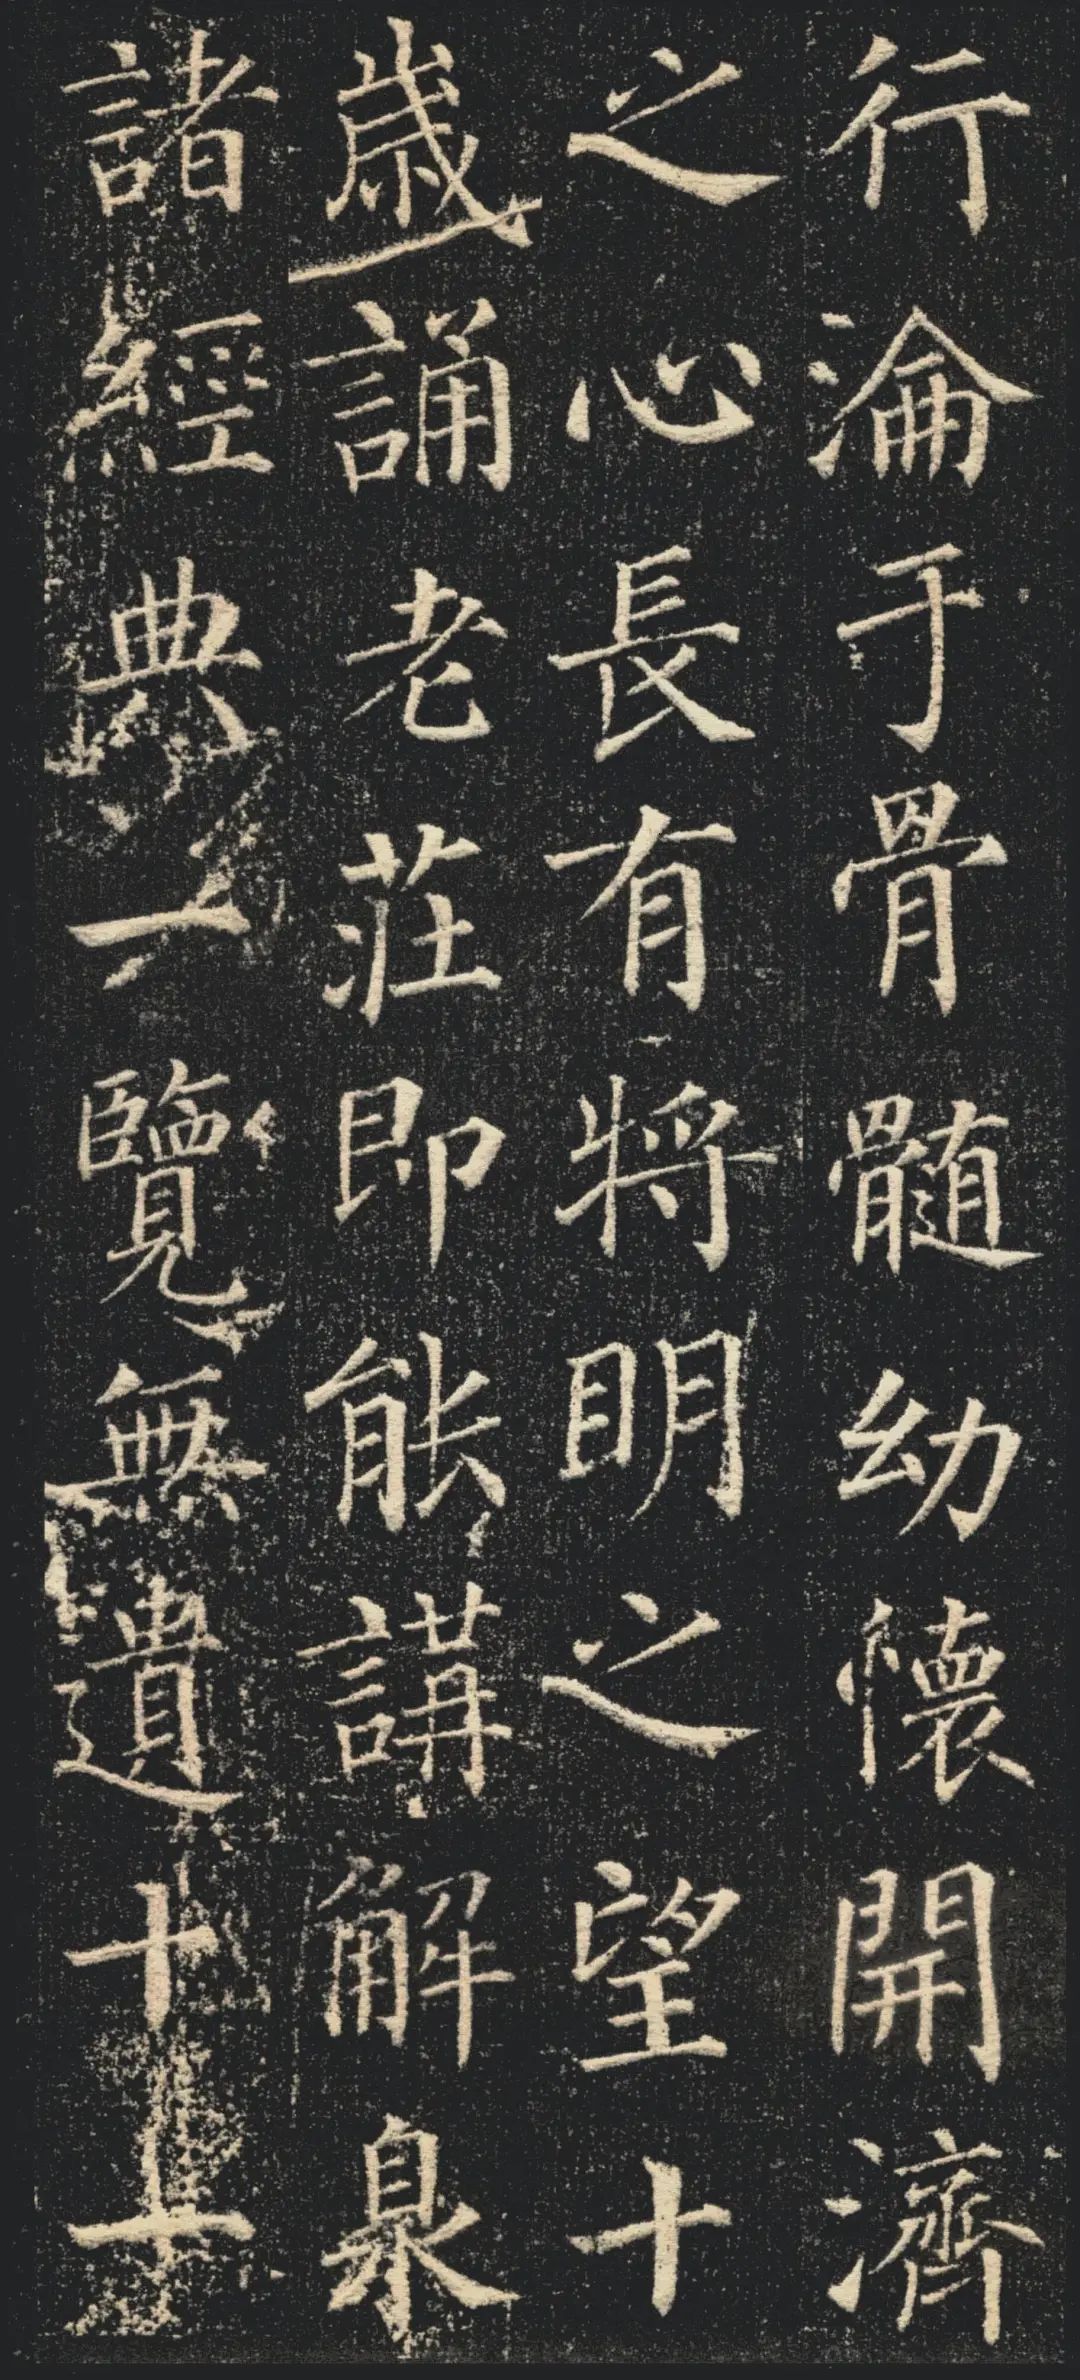 行淪于骨髓幼懷開濟
之心長有將眀之望十
歲誦老莊即能講解臮
諸經典一覽無遺十